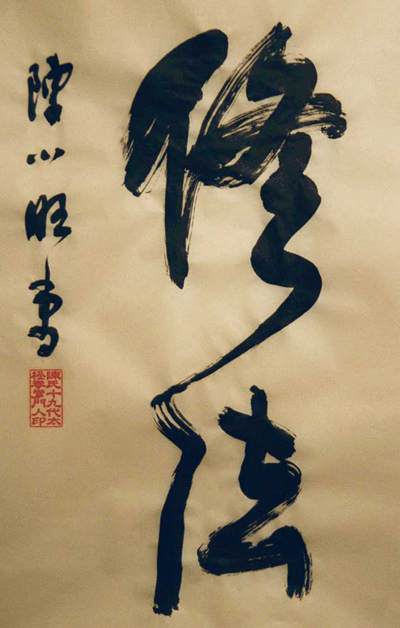 修法
陳小旺書
陳氏十九代太
極拳掌門人印